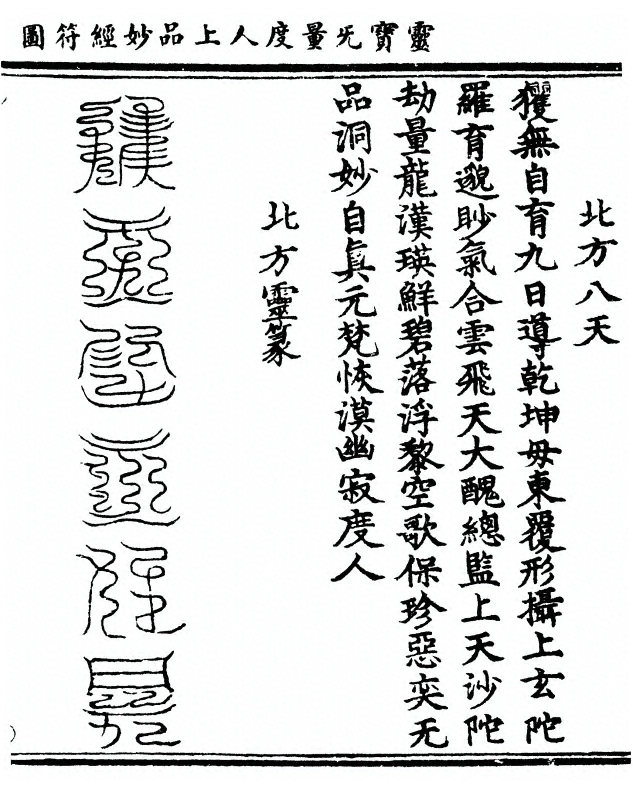 靈寶旡量度人上品妙經符圖
北方八天
玃無自育九日導乾坤毋東覆形攝上玄陀
羅育邈眇氣合雲飛天大醜總監上天沙陀
劫量龍漢瑛鮮碧落浮黎空歌保珍惡奕无
品洞妙自眞元梵恢漠幽寂度人
北方靈篆